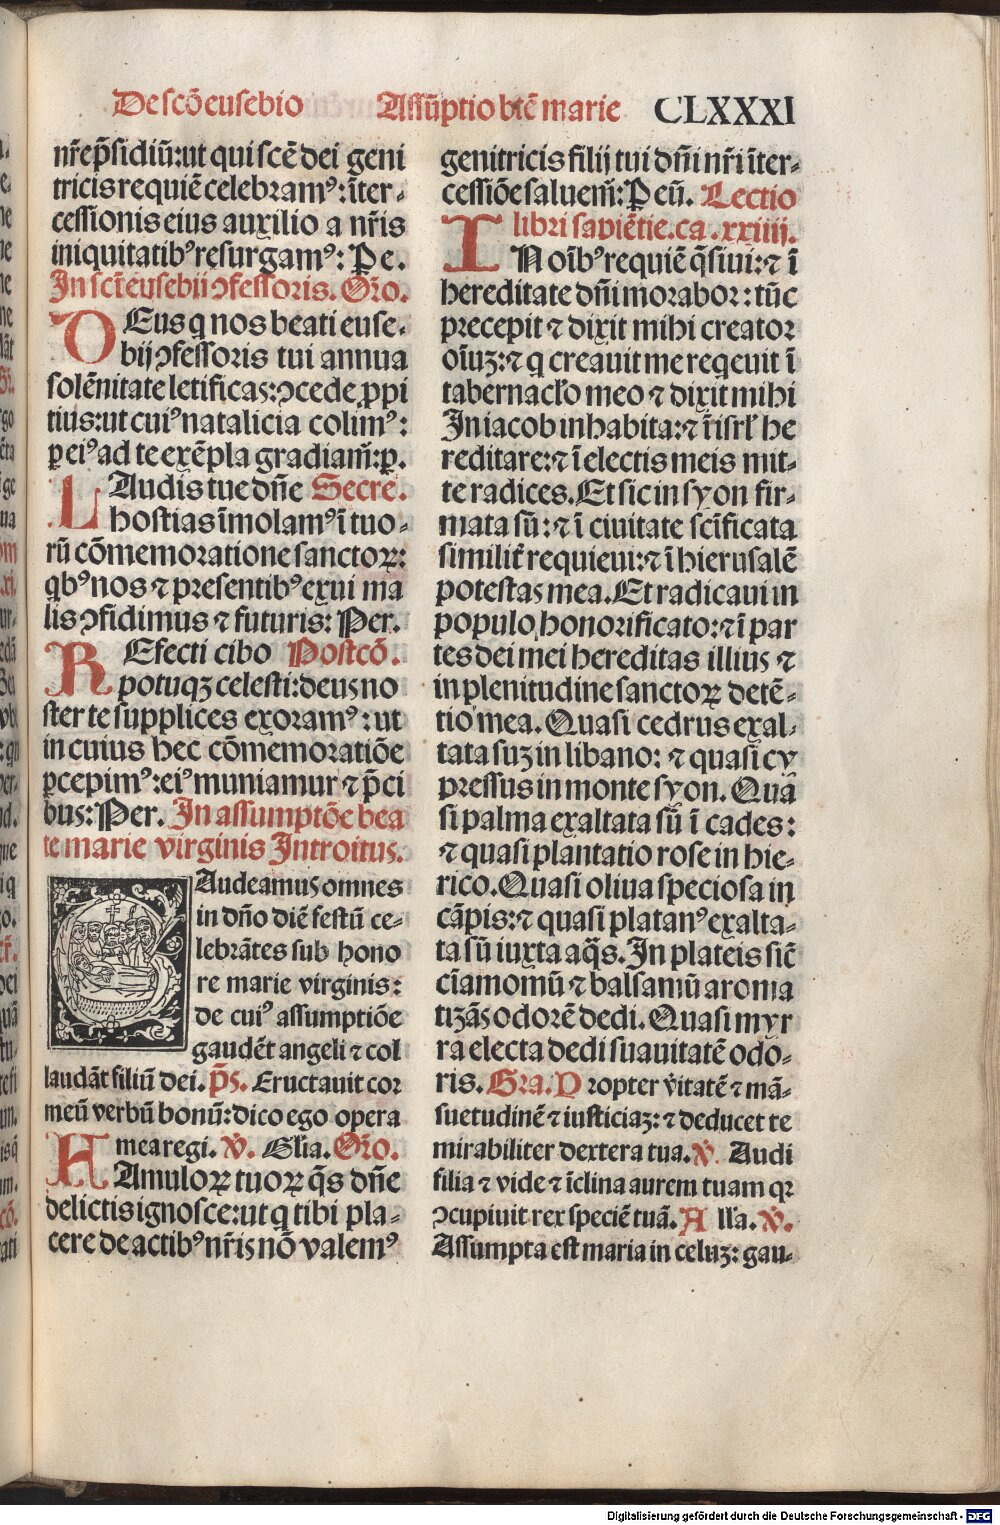 De scõ eusebio Assũptio btẽ marie CLXXXI
nr̃e p̃sidiũ: ut qui scẽ dei geni
tricis requiẽ celebramꝰ: ĩter-
cessionis eius auxilio a nr̃is
iniquitatibꝰ resurgamꝰ: Ꝑ e.
In sct̃ eusebii ꝯfessoris. Or̃o.
DEus q nos beati euse-
bij ꝯfessoris tui annua
solẽnitate letificas: ꝯcede ꝓpi
tius: ut cuiꝰ natalicia colimꝰ:
ꝑ eiꝰ ad te exẽpla gradiam̃: ꝑ.
LAudis tue dñe Secre.
hostias ĩmolamꝰ ĩ tuo-
rũ cõmemoratione sanctoꝝ:
qbꝰ nos ⁊ presentibꝰ exui ma
lis ꝯfidimus ⁊ futuris: Per.
REfecti cibo Postcõ.
potuqꝫ celesti: deus no
ster te supplices exoramꝰ: ut
in cuius hec cõmemoratiõe
ꝑcepimꝰ: eiꝰ muniamur ⁊ p̃ci
bus: Per. In assumptõe bea
te marie virginis Introitus.
GAudeamus omnes
in dño diẽ festũ ce-
lebrãtes sub hono
re marie virginis:
de cuiꝰ assumptiõe
gaudẽt angeli ⁊ col
laudãt filiũ dei. p̃s. Eructauit cor
meũ verbũ bonũ: dico ego opera
mea regi. ꝟ. Glĩa. Or̃o.
FAmuloꝝ tuoꝝ q̃s dñe
delictis ignosce: ut q tibi pla-
cere de actibꝰ nr̃is nõ valemꝰ
genitricis filij tui dñi nr̃i ĩter-
cessiõe saluem̃: Ꝑ eũ. Lectio
libri sapiẽtie. ca. xxiiij.
IN oĩbꝰ requiẽ q̃siui: ⁊ ĩ
hereditate dñi morabor: tũc
precepit ⁊ dixit mihi creator
oĩuꝫ: ⁊ q creauit me reqeuit ĩ
tabernacl̃o meo ⁊ dixit mihi
In iacob inhabita: ⁊ ĩ isrl̃ he
reditare: ⁊ ĩ electis meis mit-
te radices. Et sic in syon fir-
mata sũ: ⁊ ĩ ciuitate sc̃ificata
similit̃ requieui: ⁊ ĩ hierusalẽ
potestas mea. Et radicaui in
populo honorificato: ⁊ ĩ par
tes dei mei hereditas illius ⁊
in plenitudine sanctoꝝ detẽ-
tio mea. Quasi cedrus exal-
tata suꝫ in libano: ⁊ quasi cy
pressus in monte syon. Qua
si palma exaltata sũ ĩ cades:
⁊ quasi plantatio rose in hie-
rico. Quasi oliua speciosa in
cãpis: ⁊ quasi platanꝰ exalta-
ta sũ iuxta aq̃s. In plateis sic̃
cĩamomũ ⁊ balsamũ aroma
tizãs odorẽ dedi. Quasi myr
ra electa dedi suauitatẽ odo-
ris. Gra. Propter ṽitatẽ ⁊ mã-
suetudinẽ ⁊ iusticiaꝫ: ⁊ deducet te
mirabiliter dextera tua. ꝟ. Audi
filia ⁊ vide ⁊ ĩclina aurem tuam qꝛ
ꝯcupiuit rex speciẽ tuã. All̃a. ꝟ.
Assumpta est maria in celuꝫ: gau-
Digitalisierung gefördert durch die Deutsche Forschungsgemeinschaft - DFG